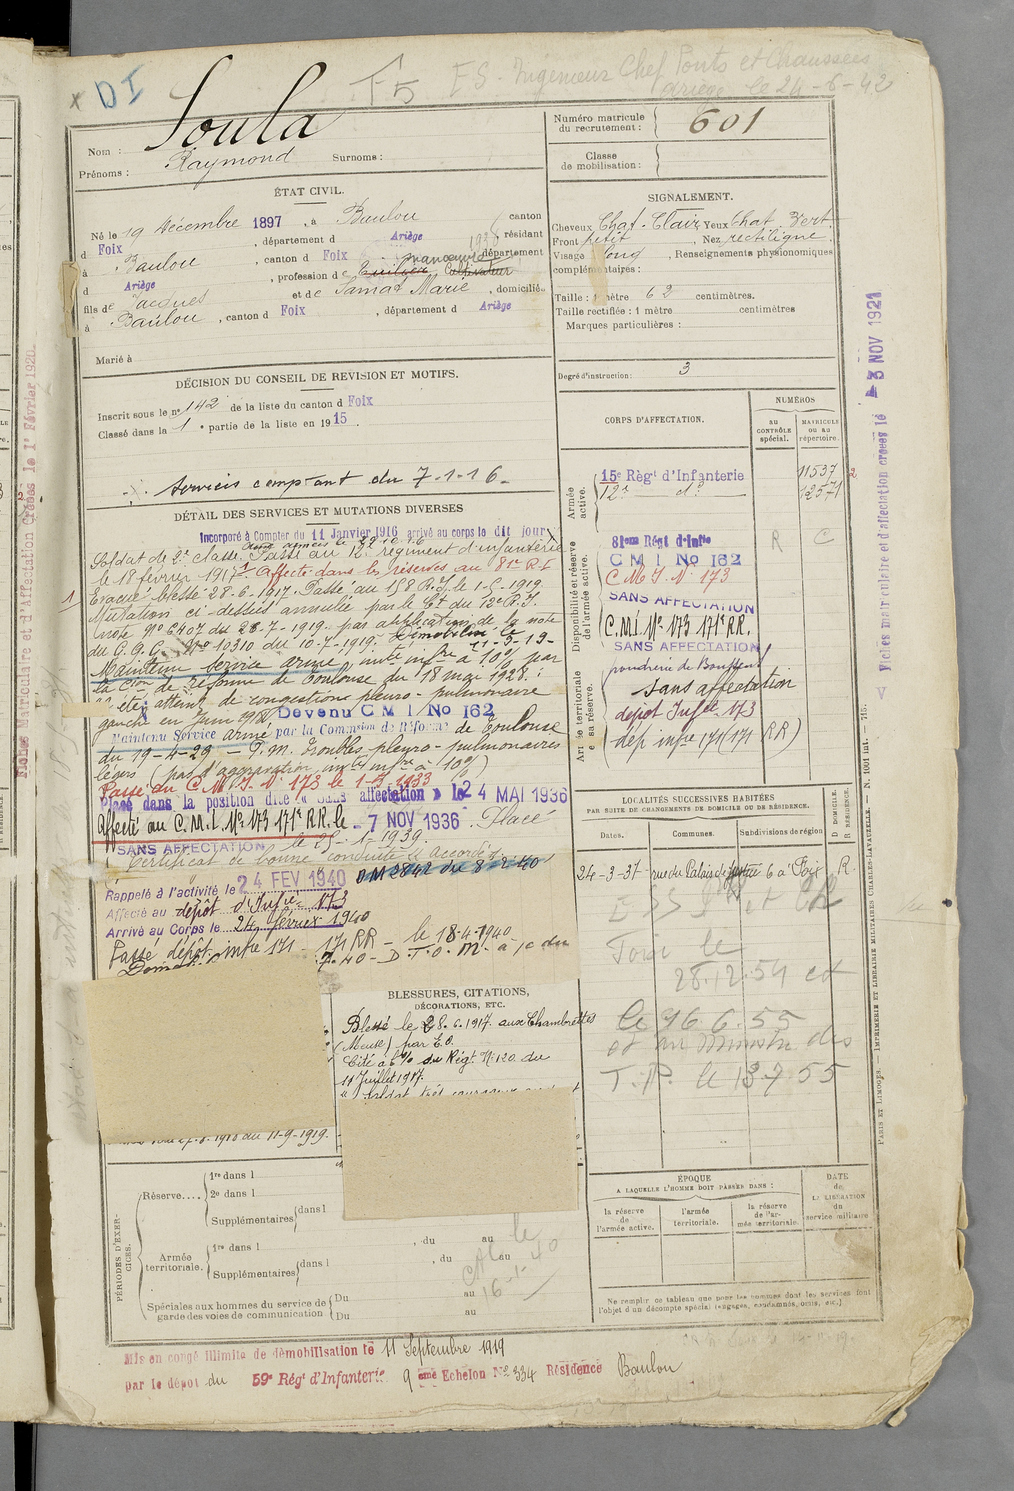 DI
F5 ES. Ingénieur Chef Ponts et Chaussées
Ariège le 24-6-42
Nom : Soula
Prénoms : Raymond Surnoms :
Numéro matricule du recrutement : 601
Classe de mobilisation :
ÉTAT CIVIL.
Né le 19 décembre 1897, à Baulou canton
d Foix, département d Ariège résidant
à Baulou, canton d Foix département
d Ariège, profession de Cultivateur
fils de Jacques et de Samat Marie, domiciliés
à Baulou, canton d Foix, département d Ariège
Marié à
SIGNALEMENT.
Cheveux Chat. Clair Yeux Chat Vert
Front petit, Nez rectiligne
Visage long, Renseignements physionomiques
complémentaires :
Taille : 1 mètre 62 centimètres.
Taille rectifiée : 1 mètre centimètres
Marques particulières :
Degré d'instruction : 3
DÉCISION DU CONSEIL DE REVISION ET MOTIFS.
Inscrit sous le no 142 de la liste du canton d Foix
Classé dans la 1e partie de la liste en 1915.
Services comptant du 7-1-16-
DÉTAIL DES SERVICES ET MUTATIONS DIVERSES
Incorporé à Compter du 11 Janvier 1916 arrivé au corps le dit jour
Soldat de 2e classe. Passé au 12e régiment d'infanterie
le 18 février 1917. Affecté dans les réserves au 81e R.I
Evacué blessé 28-6-1917. Passé au 158 R.I. le 1-6-1919
Mutation ci-dessus annulée par le Ct du 12e R.I.
(note No 6407 du 28-7-1919. par application de la note
du G.Q.G. No 10310 du 10-7-1919.
Maintenu service armé, invté infre à 10% par
la Cion de réforme de Toulouse du 18 mai 1928 :
a été atteint de congestion pleuro-pulmonaire
gauche en Juin 19 Devenu C M I No 162
Maintenu Service armé par la Commsion de Réforme de Toulouse
du 19-4-29 — P.m. troubles pleuro-pulmonaires
légers (pas d'aggravation, invté infre à 10%)
Passé au C.M.I. No 173 le 1-5-1933
Placé dans la position dite « Sans affectation » le 24 MAI 1936
Affecté au C.M.I. No 173 171e R.R. le - 7 NOV 1936. Placé
SANS AFFECTATION le 25-1-1939
Certificat de bonne conduite accordé
Rappelé à l'activité le 24 FEV 1940 DM 2842 du 8-2-40
Affecté au dépôt d'Infie 173
Arrivé au Corps le 24 février 1940
Passé dépôt infie 171 - 171 RR - le 18-4-1940
CORPS D'AFFECTATION.
NUMÉROS
AU CONTRÔLE spécial.
MATRICULE ou au répertoire.
Armée active.
15e Régt d'Infanterie 11537
12e do 12571
Disponibilité et réserve de l'armée active.
81eme Régt d'Infie R C
C M I No 162
C M I. No 173
SANS AFFECTATION
C.M.I. No 173 171e RR.
SANS AFFECTATION
Armée territoriale et sa réserve.
poudrerie de Boussens
sans affectation
dépôt Infie 173
dép infre 171 (171 RR)
LOCALITÉS SUCCESSIVES HABITÉES
PAR SUITE DE CHANGEMENTS DE DOMICILE OU DE RÉSIDENCE.
Dates. Communes. Subdivisions de région D. DOMICILE. R. RÉSIDENCE.
24-3-37- rue du Palais de Justice 6 à Foix R.
28.12.54 et
le 16 6.55
et au Ministre des
T.P. le 13.7 55
BLESSURES, CITATIONS,
DÉCORATIONS, ETC.
Blessé le 28.6.1917 aux Chambrettes
(Meuse) par E.O.
Cité à l'o/ du Régt No 120 du
11 Juillet 1917.
du 11-9-1919.
PÉRIODES D'EXERCICES.
Réserve....
1re dans l
2e dans l
Supplémentaires dans l
Armée territoriale.
1re dans l , du au
Supplémentaires dans l , du au
Spéciales aux hommes du service de garde des voies de communication
Du au
Du au
16-1-40
ÉPOQUE
A LAQUELLE L'HOMME DOIT PASSER DANS :
la réserve de l'armée active.
l'armée territoriale.
la réserve de l'armée territoriale.
DATE de LA LIBÉRATION du service militaire
Ne remplir ce tableau que pour les hommes dont les services font l'objet d'un décompte spécial (engagés, condamnés, omis, etc.)
Mis en congé illimité de démobilisation le 11 Septembre 1919
par le dépot du 59e Régt d'Infanterie 9 ème Echelon No 334 Résidence Baulou
Fiches matriculaire et d'affectation créées le - 3 NOV 1921
PARIS ET LIMOGES. — IMPRIMERIE ET LIBRAIRIE MILITAIRES CHARLES-LAVAUZELLE. — N. 1001 int. — 715.
Fiches Matriculaire et d'Affectation Créées le 1er Février 1920.